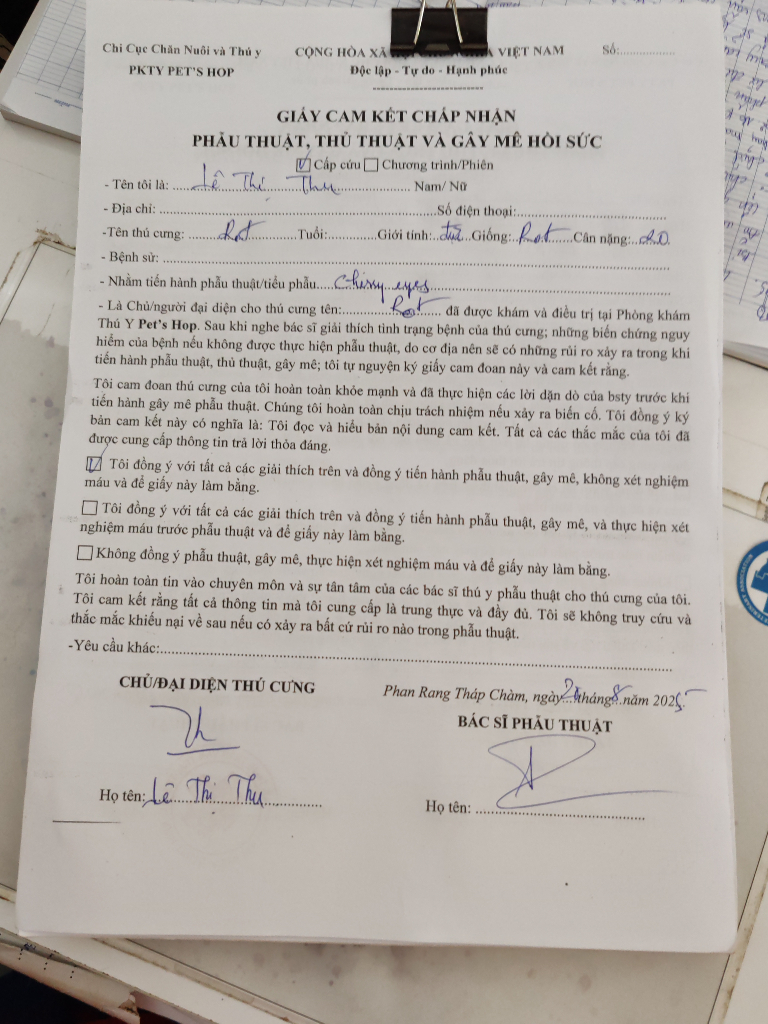 Chi Cục Chăn Nuôi và Thú y
PKTY PET'S HOP
CỘNG HÒA XÃ HỘI CHỦ NGHĨA VIỆT NAM
Độc lập - Tự do - Hạnh phúc
Số:................
GIẤY CAM KẾT CHẤP NHẬN
PHẪU THUẬT, THỦ THUẬT VÀ GÂY MÊ HỒI SỨC
Cấp cứu Chương trình/Phiên
- Tên tôi là: Lê Thị Thu Nam/ Nữ
- Địa chỉ: Số điện thoại:
-Tên thú cưng: Rot Tuổi: Giới tính: đực Giống: Rot Cân nặng: 20.
- Bệnh sử:
- Nhằm tiến hành phẫu thuật/tiểu phẫu cherry eyes
- Là Chủ/người đại diện cho thú cưng tên: Rot đã được khám và điều trị tại Phòng khám
Thú Y Pet's Hop. Sau khi nghe bác sĩ giải thích tình trạng bệnh của thú cưng; những biến chứng nguy
hiểm của bệnh nếu không được thực hiện phẫu thuật, do cơ địa nên sẽ có những rủi ro xảy ra trong khi
tiến hành phẫu thuật, thủ thuật, gây mê; tôi tự nguyện ký giấy cam đoan này và cam kết rằng.
Tôi cam đoan thú cưng của tôi hoàn toàn khỏe mạnh và đã thực hiện các lời dặn dò của bsty trước khi
tiến hành gây mê phẫu thuật. Chúng tôi hoàn toàn chịu trách nhiệm nếu xảy ra biến cố. Tôi đồng ý ký
bản cam kết này có nghĩa là: Tôi đọc và hiểu bản nội dung cam kết. Tất cả các thắc mắc của tôi đã
được cung cấp thông tin trả lời thỏa đáng.
Tôi đồng ý với tất cả các giải thích trên và đồng ý tiến hành phẫu thuật, gây mê, không xét nghiệm
máu và để giấy này làm bằng.
Tôi đồng ý với tất cả các giải thích trên và đồng ý tiến hành phẫu thuật, gây mê, và thực hiện xét
nghiệm máu trước phẫu thuật và để giấy này làm bằng.
Không đồng ý phẫu thuật, gây mê, thực hiện xét nghiệm máu và để giấy này làm bằng.
Tôi hoàn toàn tin vào chuyên môn và sự tận tâm của các bác sĩ thú y phẫu thuật cho thú cưng của tôi.
Tôi cam kết rằng tất cả thông tin mà tôi cung cấp là trung thực và đầy đủ. Tôi sẽ không truy cứu và
thắc mắc khiếu nại về sau nếu có xảy ra bất cứ rủi ro nào trong phẫu thuật.
-Yêu cầu khác:
CHỦ/ĐẠI DIỆN THÚ CƯNG
Phan Rang Tháp Chàm, ngày tháng 8 năm 2025
BÁC SĨ PHẪU THUẬT
Họ tên: Lê Thị Thu
Họ tên: